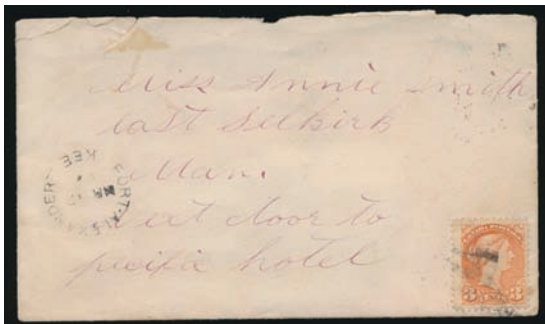 Miss Annie Smith
East Selkirk
Man.
next door to
pacific hotel
FORT-ALEXANDER
KEE
3 CENTS 3